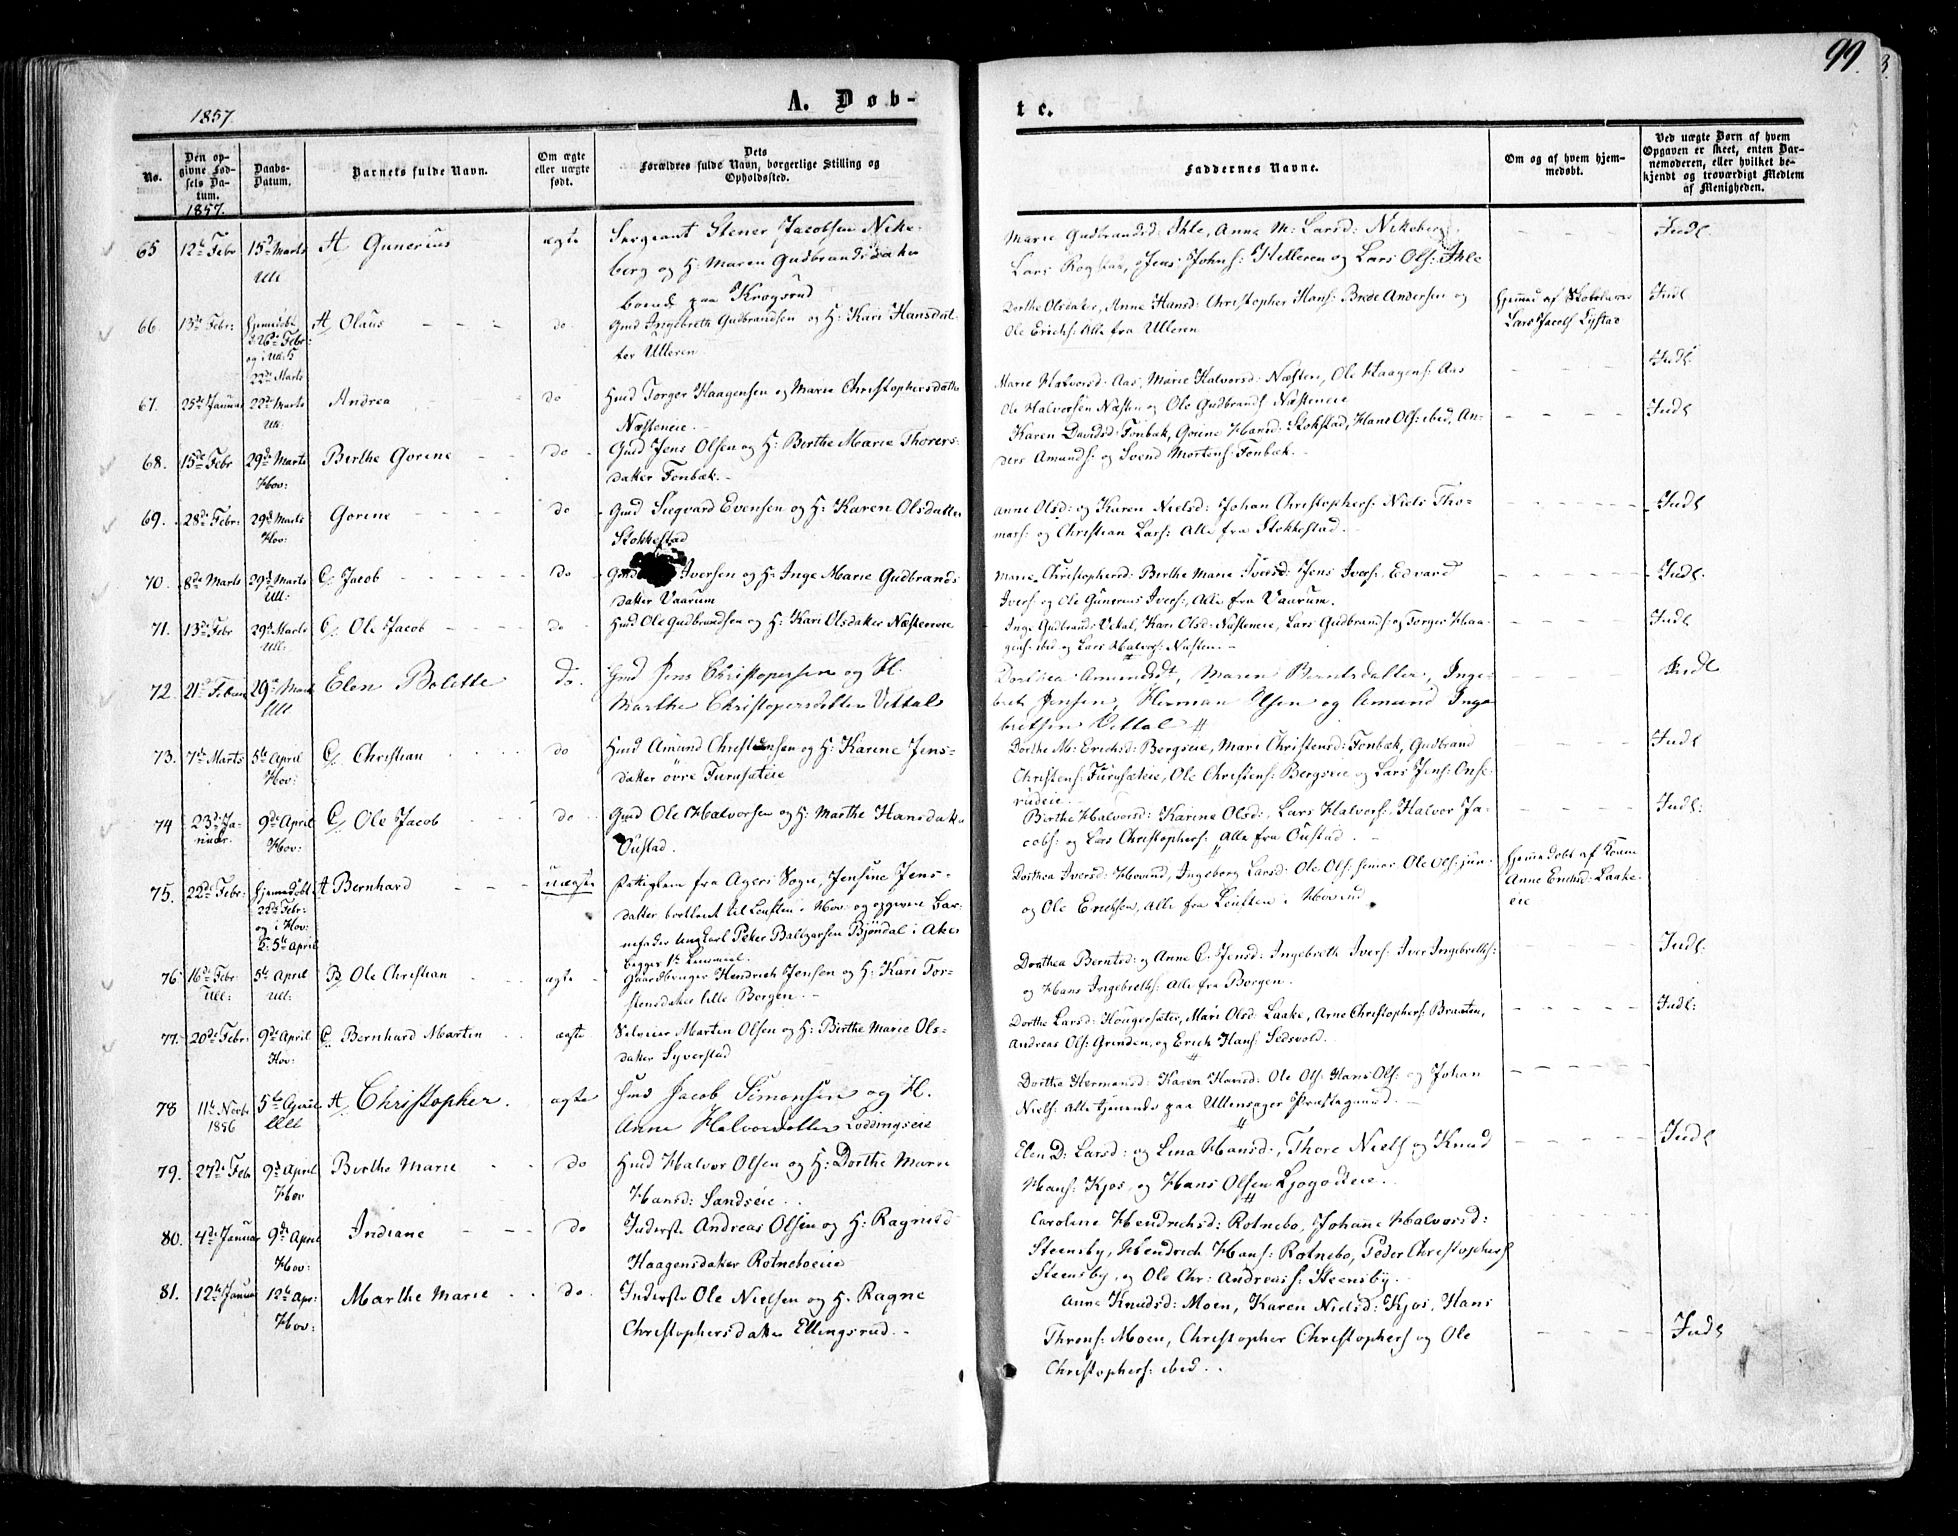 99.
1857.
A. Døb-
te.
No.
Den op-
givne Fød-
sels Da-
tum.
1857.
Daabs-
Datum.
Barnets fulde Navn.
Om ægte
eller uægte
født.
Dets
Forældres fulde Navn, borgerlige Stilling og
Opholdssted.
Faddernes Navne.
Om og af hvem hjem-
medøbt.
Ved uægte Børn af hvem
Opgaven er skeet, enten Bar-
nemoderen, eller hvilket be-
kjendt og troværdigt Medlem
af Menigheden.
65 12te Febr 15de Marts A Gunerius ægte Sergeant Stener Jacobsen Nike-
Ull
berg og H: Maren Gudbrandsdatter
boende paa Krogsrud
Marie Gudbrandsd: Ihle, Anna M: Larsd: Nikeberg,
Lars Rogstad, Jens Johns: Hilleren og Lars Ols: Ihle
Indl.
66. 13de Febr: Hjemdøbt A Olaus do. Gmd Ingebreth Gudbrandsen og H: Kari Hansdat-
26de Febr:
og i Ull:
22de Marts
ter Ulleren
Dorthe Olsdatter, Anne Hansd: Christopher Hans: Brede Andersen og
Ole Erichs: Alle fra Ulleren
Hjemmed af Skoleholder
Lars Jacobs
Indl
67. 25de Januar 22de Marts Andrea do Hmd Torger Haagensen og Marie Christophersdatter
Ull:
Næsteneie.
Marie Halvorsd: Aas, Marie Halvorsd: Næsten, Ole Haagens: Aas
Ole Halvorsen Næsten og Ole Gudbrands Næsteneie
Indl.
68. 15de Febr 29de Marts Birthe Gorine do Gmd Jens Olsen og H: Birthe Marie Thorers-
Hov:
datter Fonbæk.
Karen Davidsd: Fonbæk, Gorine Hansd: Stokstad, Hans Ols: ibid, An-
ders Amunds: og Svend Mortens: Fonbæk.
Indl
69. 28de Febr: 29de Marts Gorine do Gmd Siegvard Evensen og H: Karen Olsdatter
Hov:
Stokkestad
Anne Olsd: og Karen Nielsd: Johan Christophers: Niels Tho-
mas: og Christian Lars: Alle fra Stokkestad.
Indl
70. 8de Marts 29de Marts C Jacob do Gmd Iversen og H: Inge Marie Gudbrands
Ull:
datter Vaarum
Marie Christophersd: Birthe Marie Iversd: Jens Ivers:, Edvard
Ivers: og Ole Gunerius Ivers:, Alle fra Vaarum.
Indl.
71. 13de Febr 29de Marts C Ole Jacob do Hmd Ole Gudbrandsen og H: Kari Olsdatter Næsteneie
Ull:
Inge Gudbrands Vital, Kari Olsd: Næsteneie, Lars Gudbrands: og Torger Haa-
gens: ibid og Lars Halvors: Næsten.
Indl
72. 21de Febru 29de Marts Elen Bolette do. Gmd Jens Christopersen og H
Ull
Marthe Christopersdatter Vittal
Dorthea Amundsdt, Maren Berntsdatter, Inge-
bret Jensen, Herman Olsen og Amund Inge
bretsen Vittal
Indl
73. 7de Marts 5te April C Christian do Hmd Amund Christensen og H: Karine Jens-
Hov:
datter övre Furusæteie
Dorthe M: Erichsd: Bergseie, Mari Christensd: Fonbæk, Gudbrand
Christens: Furusæteie, Ole Christens: Bergseie og Lars Jens: Onse-
rudeie.
Indl
74 23de Ja- 9de April C Ole Jacob do Gmd Ole Halvorsen og H: Marthe Hansdatter
nuar. Hov:
Oustad.
Birthe Halvorsd: Karine Olsd: Lars Halvors: Halvor Ja-
cobs: og Lars Christophers: Alle fra Oustad.
Indl:
75. 22de Febr: Hjemedøbt A Bernhard uægte Patiglem fra Agers Sogn, Jensine Jens-
22de Febr:
og i Hov:
5te April
datter
nefader Ungkarl Peter Baltzarsen Bjöndal i Aker
Dorthea Iversd: Hovind, Ingeborg Larsd: Ole Ols: senior Ole Ols: jun-
og Ole Erichsen, Alle fra Leuften i Hovind
Hjemmedøbt af Kone
Anne Erichsd: Laake-
eie
76 16de Febr 5te April B Ole Christian ægte Gaardbruger Hendrich Jensen og H: Kari Tor-
Ull: Ull:
stensdatter lille Borgen.
Dorthea Berntsd: og Anne C. Jensd: Ingebreth Ivers: Iver Ingebreths:
og Hans Ingebreths: Alle fra Borgen.
Indl:
77. 20de Febr: 9de April C Bernhard Martin ægte Selveier Martin Olsen og H: Birthe Marie Ols-
Hov:
datter Syverstad
Dorthe Larsd: Hougersæter, Mari Olsd: Laake, Arne Christophers: Braaten,
Andreas Ols: Grinden, og Erich Hans: Sedsvold.
Indl:
78 11te Novbr 5te April A Christopher. ægte Hmd Jacob Simonsen og H.
1856 Ull
Anne Halvorsdatter Loddingseie
Dorthe Hermansd: Karen Hansd: Ole Ols: Hans Ols: og Johan
Niels: Alle tjenende paa Ullensager Præstegaard.
79. 27de Febr 9de April Birthe Marie do Hmd Halvor Olsen og H: Dorthe Marie
Hov
Hansd: Sandseie.
Elen D: Larsd: og Lina Hansd:, Thore Niels og Knud
Hans: Kjos, og Hans Olsen Ljogodteie.
Indl
80. 4de Januar 9de April Indiane do Inderst Andreas Olsen og H: Ragnild
Hov:
Haagensdatter Rotneboeie
Caroline Hendrichsd: Rotnebo, Johane Halvorsd:
Steensby, Hendrich Hans: Rotnebo, Peder Christophers
Steensby, og Ole Chr: Andreass: Steensby.
81. 12te Januar 12te Apr: Marthe Marie do. Inderst Ole Nielsen og H. Ragne
Hov:
Christophersdatter Ellingsrud.
Anne Knudsd: Moen, Karen Nielsd: Kjos, Hans
Throns: Moen, Christopher Christophers og Ole
Christophers: ibid.
Indl